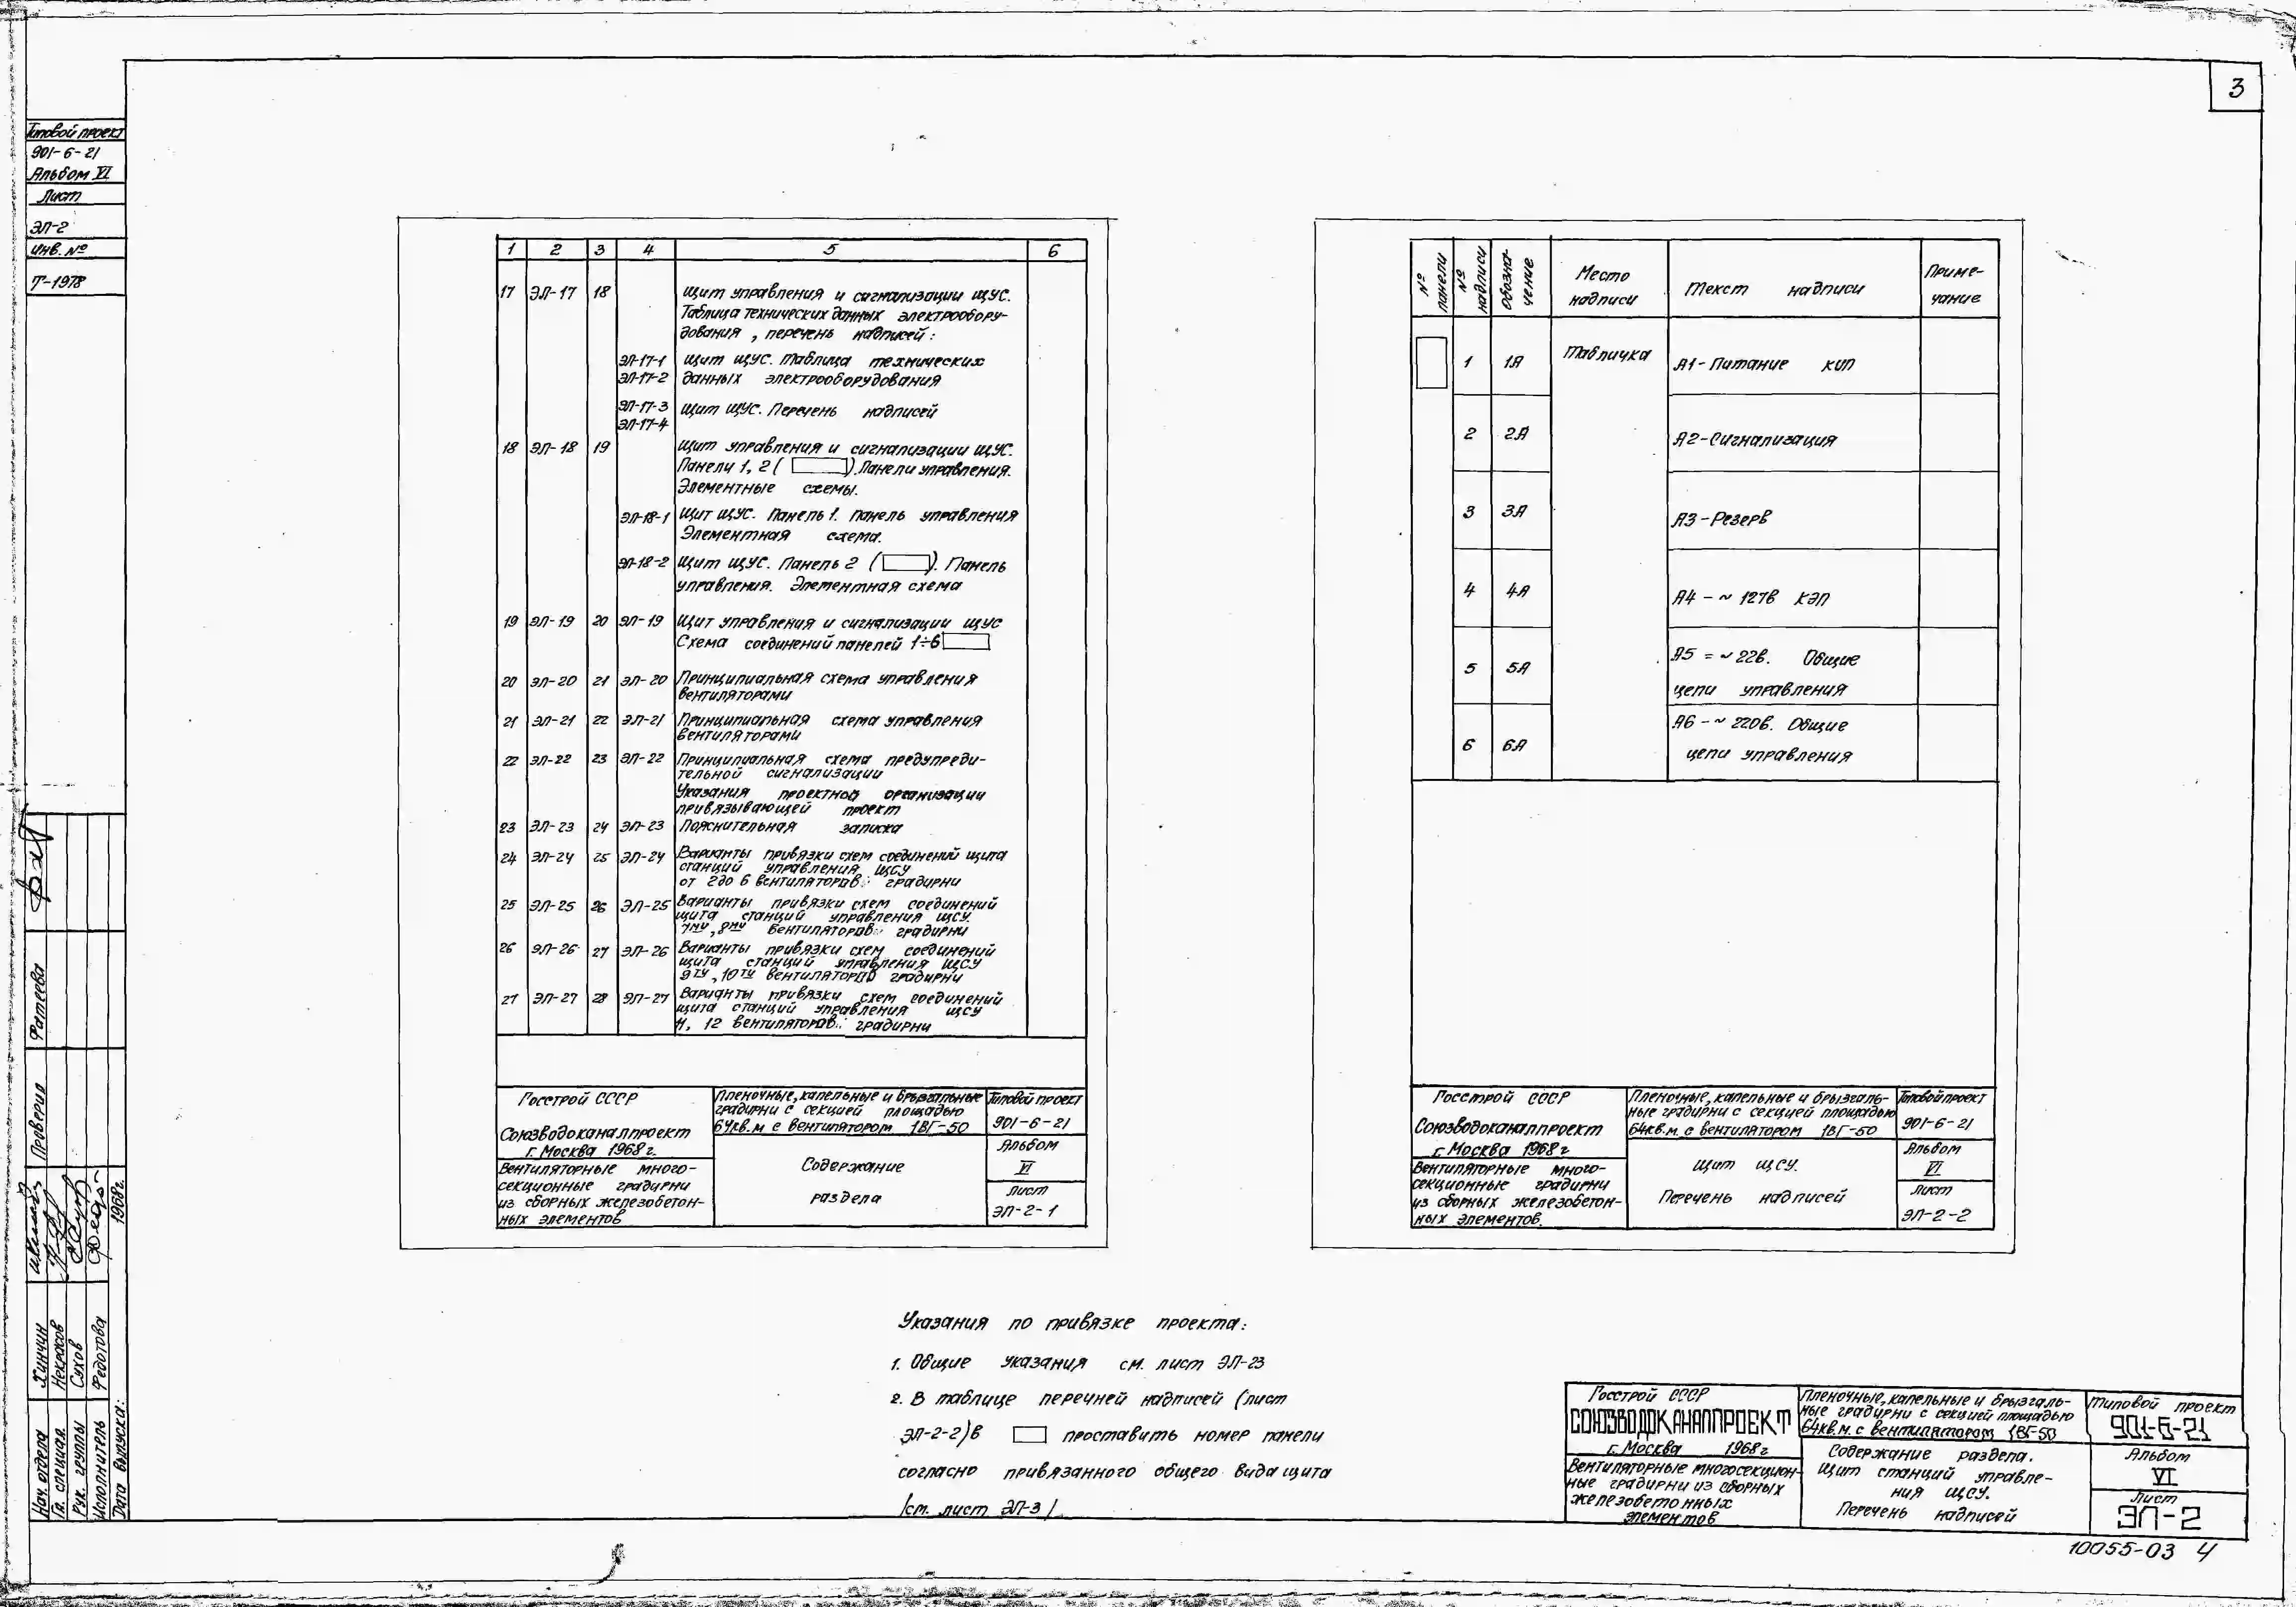 3
Типовой проект
901-6-21
Альбом VI
Лист
ЭЛ-2
Инв. №
Т-1978
1 2 3 4 5 6
17 ЭЛ-17 18 Щит управления и сигнализации ЩУС.
Таблица технических данных электрообору-
дования, перечень надписей:
ЭЛ-17-1 Щит ЩУС. Таблица технических
ЭЛ-17-2 данных электрооборудования
ЭЛ-17-3 Щит ЩУС. Перечень надписей
ЭЛ-17-4
18 ЭЛ-18 19 Щит управления и сигнализации ЩУС.
Панели 1, 2 ( ). Панели управления.
Элементные схемы.
ЭЛ-18-1 Щит ЩУС. Панель 1. Панель управления
Элементная схема.
ЭЛ-18-2 Щит ЩУС. Панель 2 ( ). Панель
управления. Элементная схема
19 ЭЛ-19 20 ЭЛ-19 Щит управления и сигнализации ЩУС
Схема соединений панелей 1÷6
20 ЭЛ-20 21 ЭЛ-20 Принципиальная схема управления
вентиляторами
21 ЭЛ-21 22 ЭЛ-21 Принципиальная схема управления
вентиляторами
22 ЭЛ-22 23 ЭЛ-22 Принципиальная схема предупреди-
тельной сигнализации
Указания проектной организации
привязывающей проект
23 ЭЛ-23 24 ЭЛ-23 Пояснительная записка
24 ЭЛ-24 25 ЭЛ-24 Варианты привязки схем соединений щита
станций управления ЩСУ
от 2 до 6 вентиляторов градирни
25 ЭЛ-25 26 ЭЛ-25 Варианты привязки схем соединений
щита станций управления ЩСУ.
7му, 8му вентиляторов градирни
26 ЭЛ-26 27 ЭЛ-26 Варианты привязки схем соединений
щита станций управления ЩСУ
9ту, 10ту вентиляторов градирни
27 ЭЛ-27 28 ЭЛ-27 Варианты привязки схем соединений
щита станций управления ЩСУ
11, 12 вентиляторов градирни
Госстрой СССР
Союзводоканалпроект
г. Москва 1968г.
Вентиляторные много-
секционные градирни
из сборных железобетон-
ных элементов
Пленочные, капельные и брызгальные
градирни с секцией площадью
64кв.м с вентилятором 1ВГ-50
Содержание
раздела
Типовой проект
901-6-21
Альбом
VI
Лист
ЭЛ-2-1
№ панели
№ надписи
Обозна-
чение
Место
надписи
Текст надписи
Приме-
чание
1 1А Табличка А1-Питание КИП
2 2А А2-Сигнализация
3 3А А3-Резерв
4 4А А4 - ~ 127в КЭП
5 5А А5 = ~ 22в. Общие
цепи управления
6 6А А6 - ~ 220в. Общие
цепи управления
Госстрой СССР
Союзводоканалпроект
г. Москва 1968г
Вентиляторные много-
секционные градирни
из сборных железобетон-
ных элементов.
Пленочные, капельные и брызгаль-
ные градирни с секцией площадью
64кв.м. с вентилятором 1ВГ-50
Щит ЩСУ.
Перечень надписей
Типовой проект
901-6-21
Альбом
VI
Лист
ЭЛ-2-2
Указания по привязке проекта:
1. Общие указания см. лист ЭЛ-23
2. В таблице перечней надписей (лист
ЭЛ-2-2) в проставить номер панели
согласно привязанного общего вида щита
/см. лист ЭЛ-3/
Госстрой СССР
СОЮЗВОДОКАНАЛПРОЕКТ
г. Москва 1968г
Вентиляторные многосекцион-
ные градирни из сборных
железобетонных
элементов
Пленочные, капельные и брызгаль-
ные градирни с секцией площадью
64кв.м. с вентилятором 1ВГ-50
Содержание раздела.
Щит станций управле-
ния ЩСУ.
Перечень надписей
Типовой проект
901-6-21
Альбом
VI
Лист
ЭЛ-2
10055-03 4
Проверил Фатеева
Нач. отдела Хинчин
Гл. специал. Некрасов
Рук. группы Сухов
Исполнитель Федотова
Дата выпуска: 1968г.